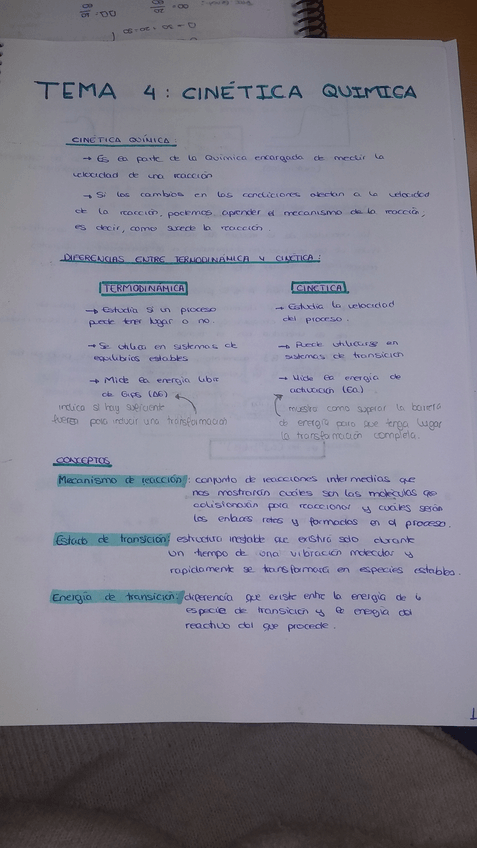 TEMA 4: CINÉTICA QUIMICA
CINÉTICA QUÍMICA:
→ Es la parte de la Química encargada de medir la
velocidad de una reacción
→ Si los cambios en las condiciones afectan a la velocidad
de la reacción, podemos aprender el mecanismo de la reacción,
es decir, como sucede la reacción.
DIFERENCIAS ENTRE TERMODINÁMICA Y CINÉTICA:
TERMODINÁMICA
→ Estudia si un proceso
puede tener lugar o no.
→ Se utiliza en sistemas de
equilibrios estables
→ Mide la energía libre
de Gibs (ΔG)
indica si hay suficiente
fuerza para inducir una transformación
CINÉTICA
→ Estudia la velocidad
del proceso.
→ Puede utilizarse en
sistemas de transición
→ Mide la energía de
activación (Ea)
muestra como superar la barrera
de energía para que tenga lugar
la transformación completa.
CONCEPTOS
Mecanismo de reacción: conjunto de reacciones intermedias que
nos mostrarán cuáles son las moléculas que
colisionarán para reaccionar y cuáles serán
los enlaces rotos y formados en el proceso.
Estado de transición: estructura inestable que existirá solo durante
un tiempo de una vibración molecular y
rapidamente se transformará en especies estables.
Energía de transición: diferencia que existe entre la energía de la
especie de transición y la energía del
reactivo del que procede.
1